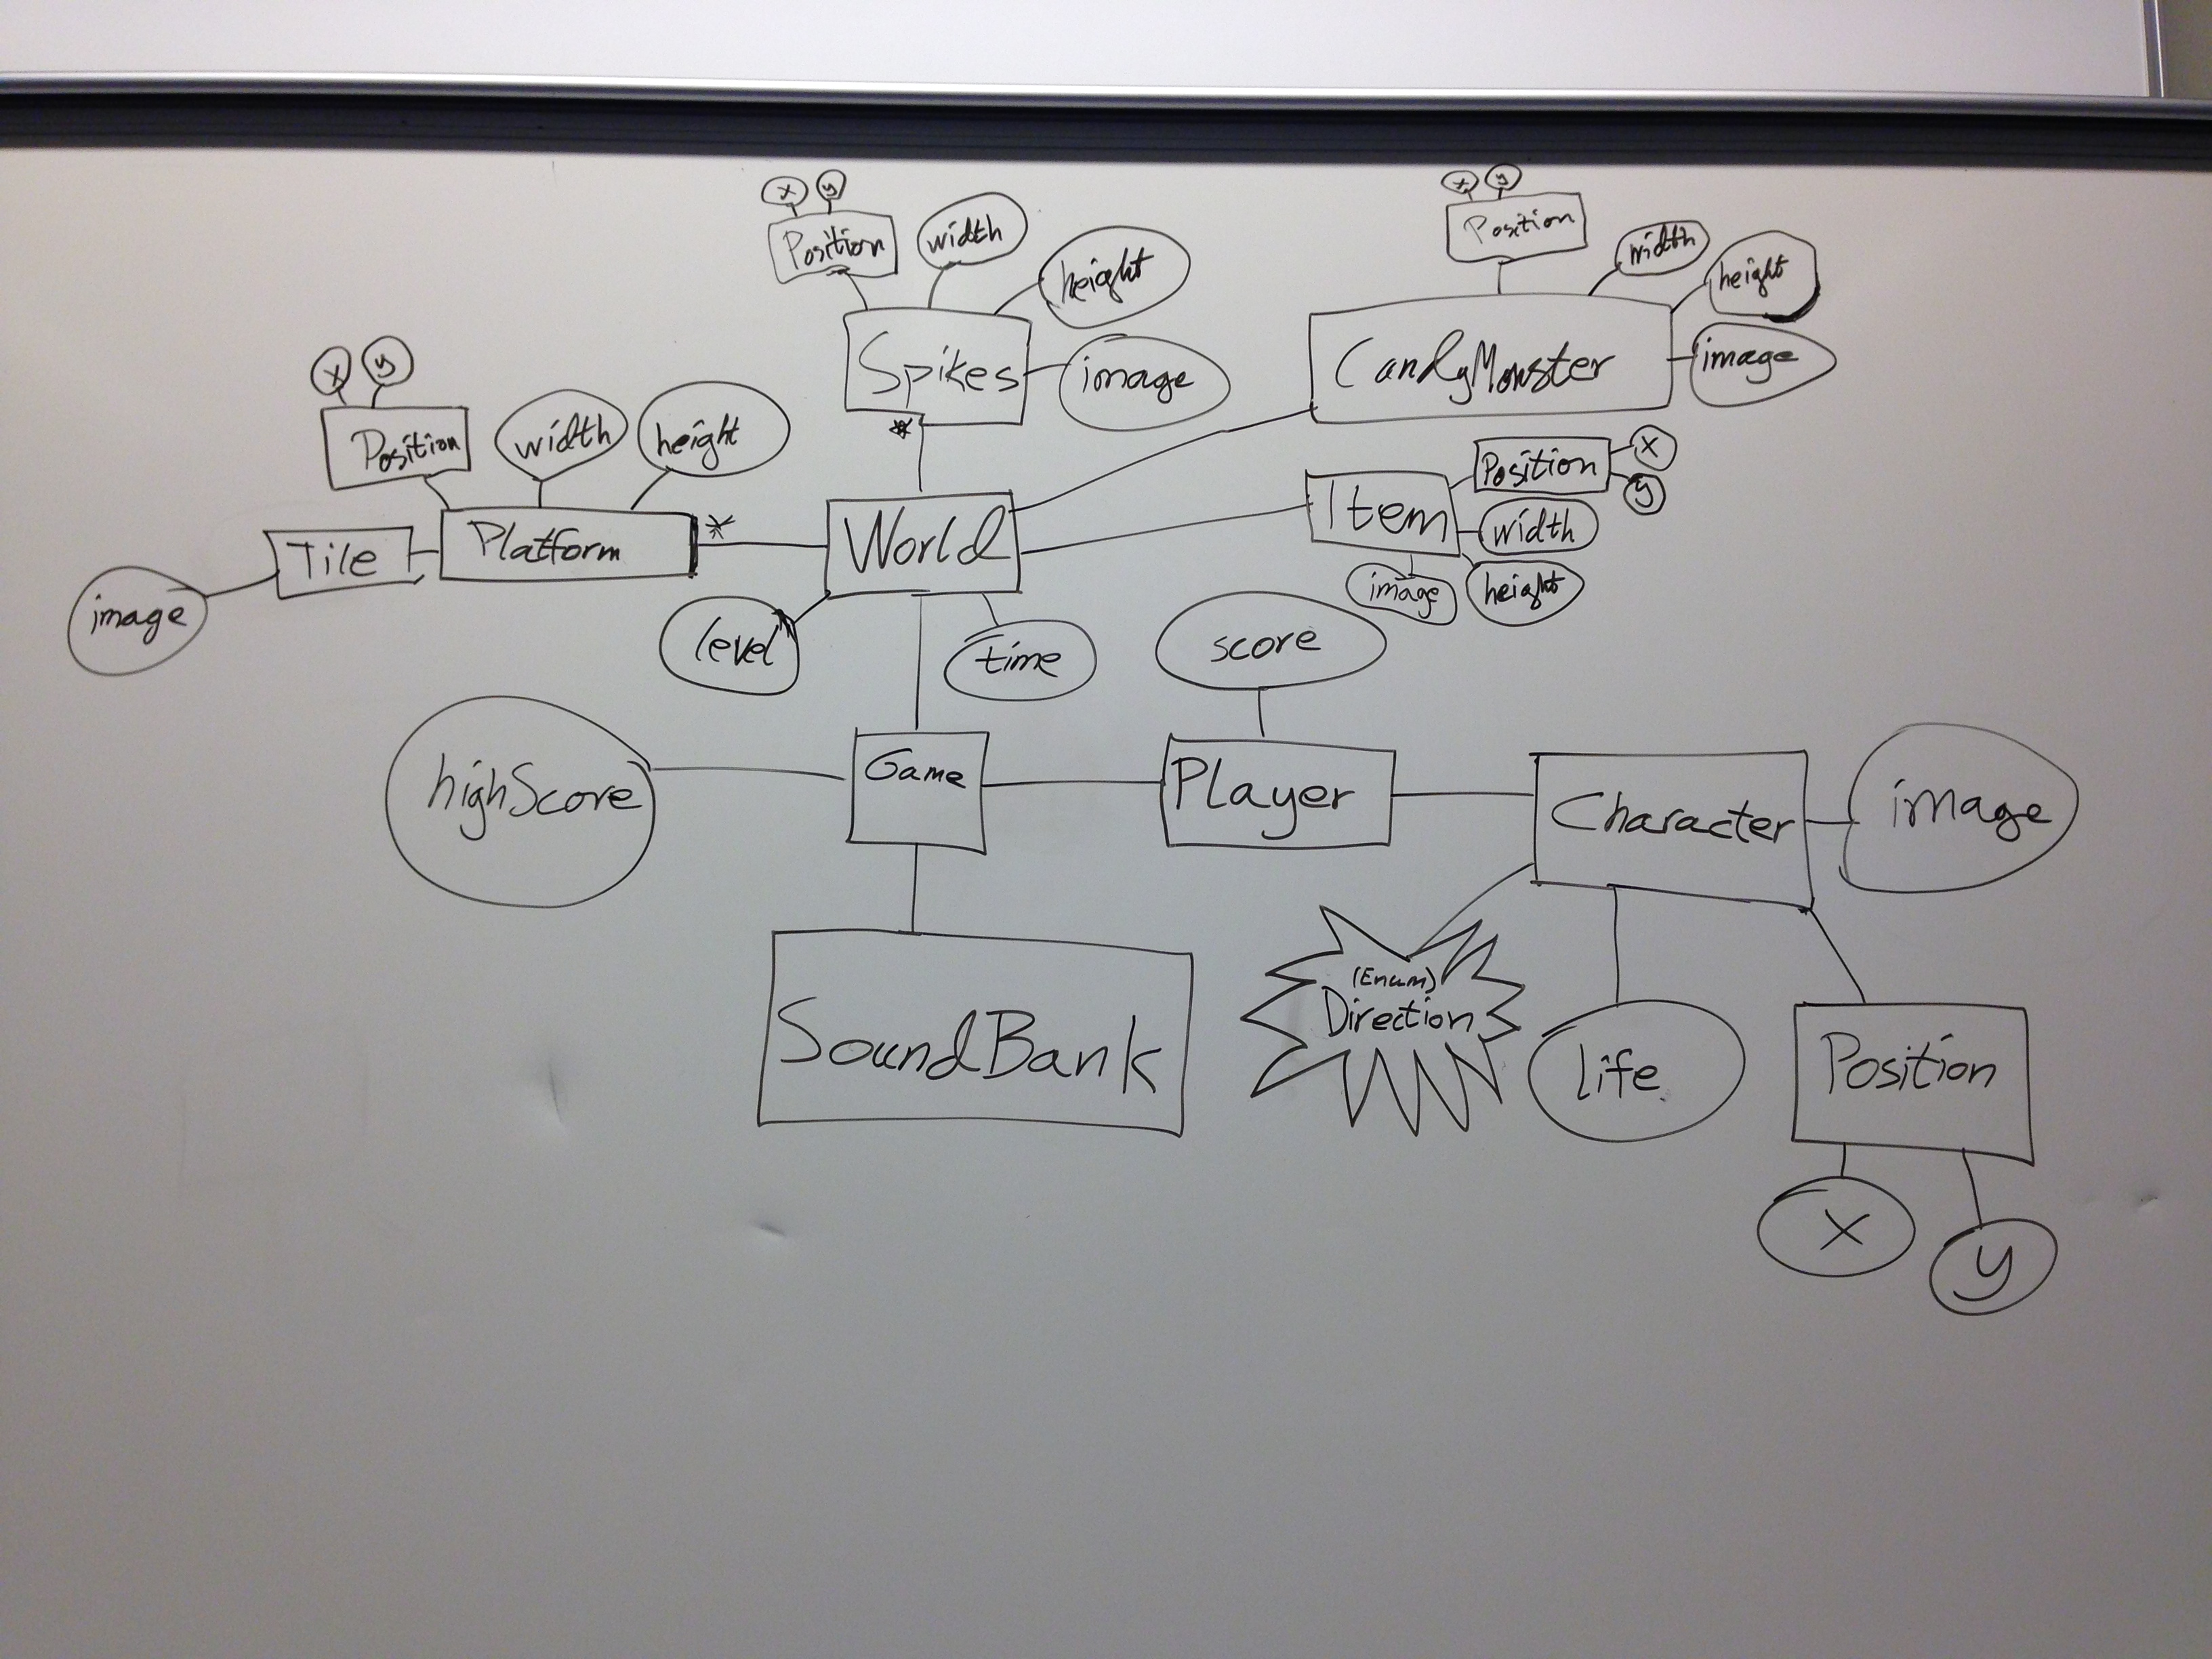 x
y
Position
width
height
image
Spikes
*
x
y
Position
width
height
image
CandyMonster
x
y
Position
width
height
Platform
*
Tile
image
World
level
time
Item
Position
x
y
width
height
image
score
highScore
Game
Player
Character
image
SoundBank
(Enum)
Direction
life
Position
x
y